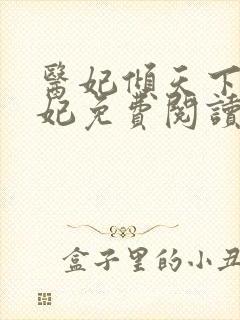 醫妃傾天下
妃免費閱讀
盒子里的小丑